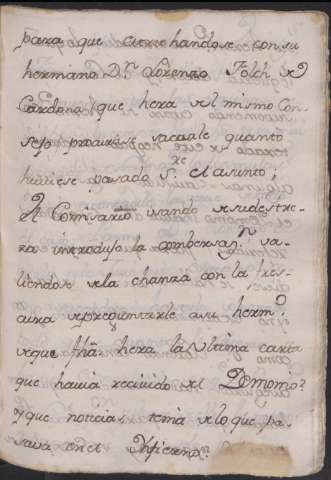 para que cierrehandose con su
hermano Dⁿ Lorenzo Folch de
Cardona (que hera del mismo Con-
sejo procurase sacarle quanto
huuiese pasado s.re el asunto;
El Comisario usando de su destre-
za introdujo la combersaⁿ. va-
liendose de la chanza con la
de preguntarle a su herm.º
de que fhã hera la Vltima carta
que hauia reciuido del Demonio?
y que noticias tenia de lo que pa-
saua en el Infierno?